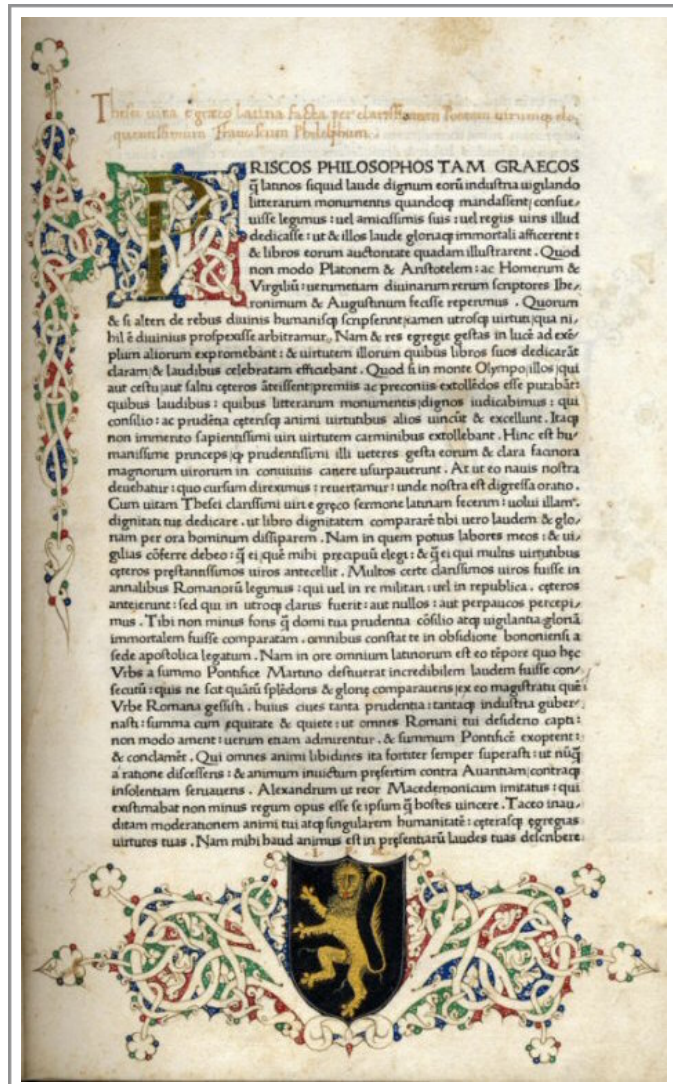 Thesei uita e greco latina facta per clarissimum
quentissimum Franciscum Philelphum.
PRISCOS PHILOSOPHOS TAM GRAECOS
q̃ latinos siquid laude dignum eorũ industria uigilando
litterarum monumentis quandoqȝ mandassent: consue⸗
uisse legimus: uel amicissimis suis: uel regiis uiris illud
dedicasse: ut & illos laude gloriaqȝ immortali afficerent:
& libros eorum auctoritate quadam illustrarent. Quod
non modo Platonem & Aristotelem: ac Homerum &
Virgiliũ: uerumetiam diuinarum rerum scriptores Ihe⸗
ronimum & Augustinum fecisse reperimus. Quorum
& si alteri de rebus diuinis humanisqȝ scripserint: tamen utrosqȝ uirtuti: qua ni⸗
hil ẽ diuinius prospexisse arbitramur. Nam & res egregie gestas in lucẽ ad exẽ⸗
plum aliorum expromebant: & uirtutem illorum quibus libros suos dedicarãt
claram: & laudibus celebratam efficiebant. Quod si in monte Olympo: illos: qui
aut cestu: aut saltu cęteros ãteissent: premiis ac preconiis extollẽdos esse putabãt:
quibus laudibus: quibus litterarum monumentis: dignos iudicabimus: qui
consilio: ac prudẽtia cęterisqȝ animi uirtutibus alios uincũt & excellunt. Itaqȝ
non immerito sapientissimi uiri uirtutem carminibus extollebant. Hinc est hu⸗
manissime princeps: qȝ prudentissimi illi ueteres gesta eorum & clara facinora
magnorum uirorum in conuiuiis canere usurpauerunt. At ut eo nauis nostra
deuehatur: quo cursum direximus: reuertamur: unde nostra est digressa oratio.
Cum uitam Thesei clarissimi uiri e gręco sermone latinam fecerim: uolui illam
dignitati tuę dedicare. ut libro dignitatem compararẽ tibi uero laudem & glo⸗
riam per ora hominum dissiparem. Nam in quem potius labores meos: & ui⸗
gilias cõferre debeo: q̃ ei: quẽ mihi precipuũ elegi: & q̃ ei qui multis uirtutibus
cęteros pręstantissimos uiros antecellit. Multos certe clarissimos uiros fuisse in
annalibus Romanorũ legimus: qui uel in re militari: uel in republica. cęteros
anteierunt: sed qui in utroqȝ clarus fuerit: aut nullos: aut perpaucos percepi⸗
mus. Tibi non minus foris q̃ domi tua prudentia cõsilio atqȝ uigilantia: gloriã
immortalem fuisse comparatam. omnibus constat te in obsidione bononiensi a
sede apostolica legatum. Nam in ore omnium latinorum est eo tẽpore quo hęc
Vrbs a summo Pontifice Martino destiuerat incredibilem laudem fuisse con⸗
secutũ: quis ne scit quãtũ splẽdoris & glorię comparaueris: ex eo magistratu quẽ
Vrbe Romana gessisti. huius ciues tanta prudentia: tantaqȝ industria guber⸗
nasti: summa cum equitate & quiete: ut omnes Romani tui desiderio capti:
non modo ament: uerum etiam admirentur. & summum Pontificẽ exoptent:
& conclamẽt. Qui omnes animi libidines ita fortiter semper superasti: ut nũq̃
a ratione discesseris: & animum inuictum pręsertim contra Auaritiam: contraqȝ
insolentiam seruaueris. Alexandrum ut reor Macedemonicum imitatus: qui
existimabat non minus regum opus esse se ipsum q̃ hostes uincere. Taceo inau⸗
ditam moderationem animi tui atqȝ singularem humanitatẽ: cęterasqȝ ęgregias
uirtutes tuas. Nam mihi haud animus est in pręsentiarũ laudes tuas describere